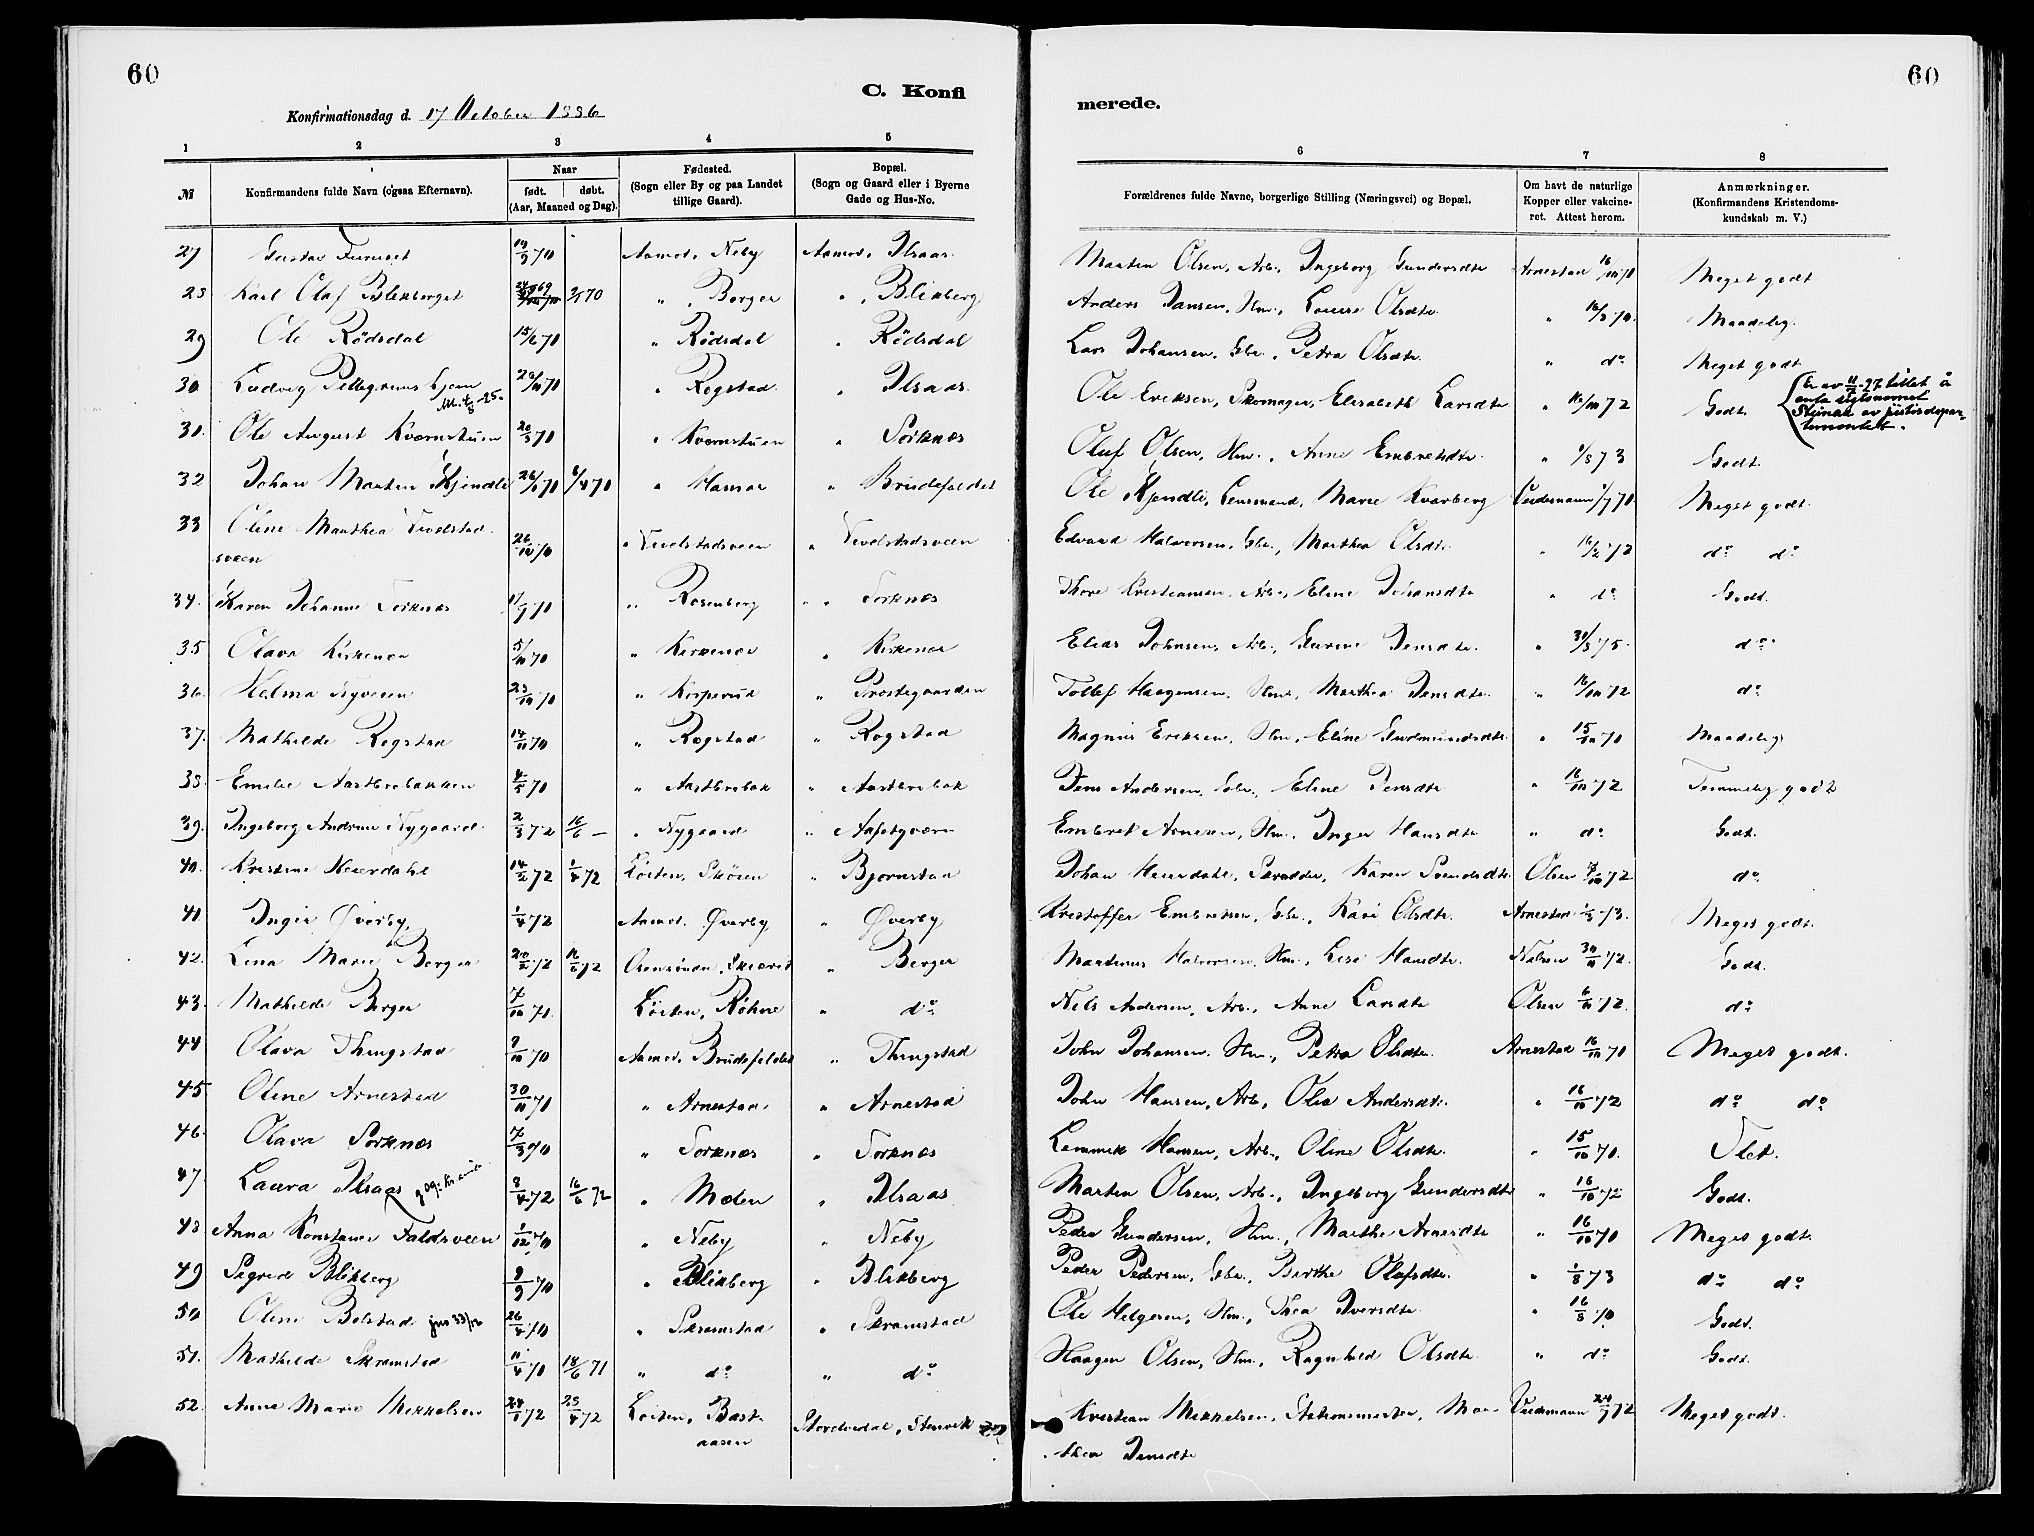 60
C. Konfi
Konfirmationsdag d. 17 October 1886
1 2 3 4 5
№
Konfirmandens fulde Navn (ogsaa Efternavn).
Naar
født. døbt.
(Aar, Maaned og Dag).
Fødested.
(Sogn eller By og paa Landet
tillige Gaard).
Bopæl.
(Sogn og Gaard eller i Byerne
Gade og Hus-No.
60
merede.
6 7 8
Forældrenes fulde Navne, borgerlige Stilling (Næringsvei) og Bopæl.
Om havt de naturlige
Kopper eller vakcine-
ret. Attest herom.
Anmærkninger.
(Konfirmandens Kristendoms-
kundskab m. V.)
27 Gustav Furuset 19/9 70 Aamot, Neby Aamot, Ilsaas Marten Olsen, Arb., Ingeborg Gundersdtr Arnestad 16/10 70 Meget godt
28 Karl Olaf Blikberget 2/1 70 " Berger " Blikberg Anders Jansen, Hm., Louise Olsdtr. " 16/8 70. Maadelig.
29 Ole Rödsdal 15/6 70 " Rödsdal " Rödsdal Lars Johansen, Gbr., Petra Olsdtr. " do Meget godt
30 Ludvig Pellegrinus 28/10 70 " Rogstad " Ilsaas. Ole Eriksen, Skomager, Elisabeth Larsdtr " 16/10 72 Godt.
31. Ole August Kværnstuen 20/3 70 " Kværnstuen " Sorknæs Oluf Olsen, Hm., Anne Embretsdtr. " 1/8 73 Godt.
32 Johan Marten Kjendli 26/1 70 6/4 70 " Hamar " Brudefaldet Ole Kjendli, Lensmand, Marie Kvarberg 1/7 70 Meget godt.
33 Oline Marthea Tvedstad
sveen 26/10 70 " Tvedstadsveen " Tvedstadsveen Edvard Halvorsen, Gbr., Marthea Olsdtr. " 16/2 72 do do
34. Karen Johanne Sorknæs 11/9 70 " Rosenberg " Sorknæs Thore Kristiansen, Arb., Eline Johansdtr " do Godt.
35 Olava Kirkenær 5/10 70 " Kirkenær " Kirkenær Elias Johnsen, Arb., Gurine Jensdtr. " 30/8 75. do
36. Helma Nyveien 23/10 70 " Kirperud " Præstegaarden Tollef Haagensen, Hm., Marthea Jensdtr. " 16/10 72 do
37. Mathilde Rogstad 14/11 70 " Rogstad " Rogstad Magnus Eriksen, Hm., Eline Gudmundsdtr. " 15/10 70 Maadelig
38. Emilie Aastebrobakken 4/5 70 " Aastebrobak " Aastebrobak Jens Andersen, Gbr., Eline Jensdtr " 16/10 72 Temmelig godt
39. Ingeborg Andrine Nygaard 2/3 72 16/6 — " Nygaard " Embret Arnesen, Hm., Inger Hansdtr " do Godt.
40. Kristine Heierdahl 14/2 72 1/4 72 Löiten, Skösen " Bjørnstad Johan Heierdahl, Skrædder, Karen Svendsdtr Olsen 72 do
41 Inger Øverby 1/4 72 Aamot. Øverby " Øverby Kristoffer Embretsen, Gbr., Kari Olsdtr. Arnestad 1/8 73. Meget godt.
42. Lina Marie Berger 20/2 72 16/6 72 " Berger Martinus Halvorsen, Hm., Lise Hansdtr. 30/11 72. Godt.
43. Mathilde Berger 7/10 70. Löiten, Røhne " do Nils Andersen, Arb., Anne Larsdtr Olsen 6/11 72. do
44 Olava Thingstad 9/10 70 Aamot. Brudefaldet " Thingstad John Johansen, Hm., Petra Olsdtr. Arnestad 16/10 70 Meget godt.
45 Oline Arnestad 30/11 70 " Arnestad " Arnestad John Hansen, Arb., Olia Andersdtr. " 16/10 72 do do
46. Olava Sorknæs 7/3 70 " Sorknæs " Sorknæs Lemmik Hansen, Arb., Oline Olsdtr. " 15/10 70. Slet.
47. Laura Ilsaas 8/4 72 16/6 72 " Moen " Ilsaas Marten Olsen, Arb., Ingeborg Gundersdtr " 16/10 72 Godt.
48 Anna Konstanse Faldsveen 1/12 70 " Neby " Neby Peder Gundersen, Hm., Marthe Arnesdtr " 16/10 70 Meget godt.
49 Sigrid Blikberg 9/9 70 " Blikberg " Blikberg Peder Pedersen, Gbr., Berthe Olafsdtr. " 1/8 73 do do
50 Oline Bolstad 26/4 70 " Skramstad " Skramstad Ole Helgesen, Hm., Thea Iversdtr. " 16/8 70. Godt.
51. Mathilde Skramstad 11/4 70 18/6 71 " do " do Haagen Olsen, Hm., Ragnhild Olsdtr. " do Godt.
52. Anne Marie Mikkelsen 24/1 72 25/4 72 Löiten, Bast-
aasen Storelvedal, Stenvik Kristian Mikkelsen, Stationsmester, Mar-
thea Jensdtr 24/7 72 Meget godt.